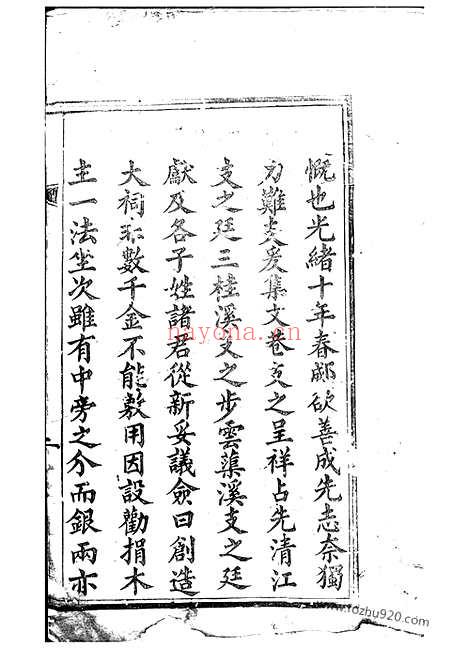 慨也光緒十年春鄰欲善成先志奈獨
為難矣爰集文卷支之呈祥占先清江
支之廷三桂溪支之步雲蕖溪支之廷
獻及各子姓諸君從新妥議僉曰創造
大祠非數千金不能敷用因設勸捐木
主一法坐次雖有中旁之分而銀兩亦
nayona.cn
www.fozhu920.com